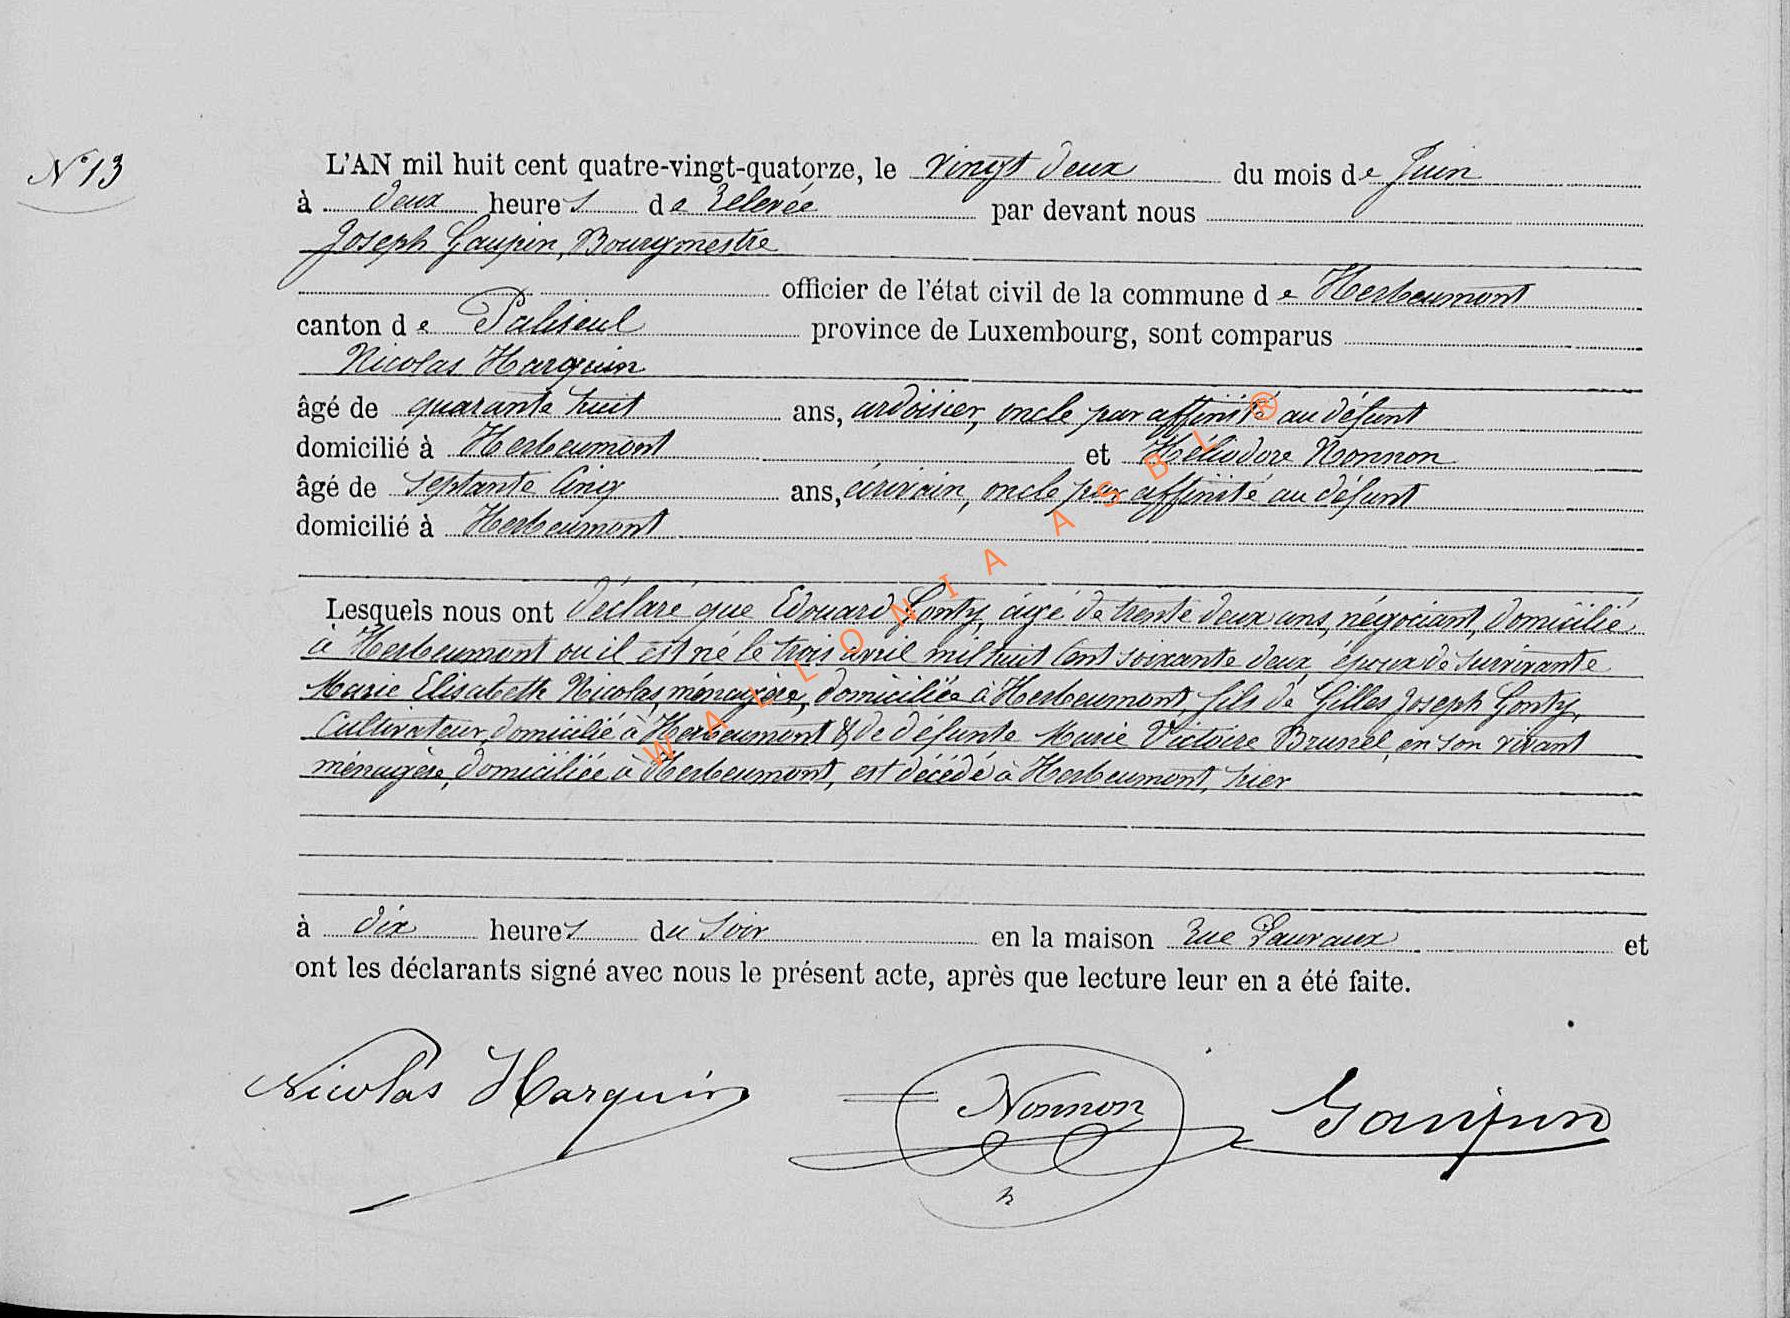 N° 13
L'AN mil huit cent quatre-vingt-quatorze, le vingt deux du mois de Juin
à deux heures de relevée par devant nous
Joseph Gaupin, Bourgmestre
officier de l'état civil de la commune de Herbeumont
canton de Paliseul province de Luxembourg, sont comparus
Nicolas Harquin
âgé de quarante huit ans, ardoisier, oncle par affinité au défunt
domicilié à Herbeumont et Héliodore Nonnon
âgé de septante cinq ans, écrivain, oncle par affinité au défunt
domicilié à Herbeumont
Lesquels nous ont déclaré que Edouard Gonty, âgé de trente deux ans, négociant, domicilié
à Herbeumont où il est né le trois avril mil huit cent soixante deux, époux de survivante
Marie Elisabeth Nicolas, ménagère, domiciliée à Herbeumont, fils de Gilles Joseph Gonty,
cultivateur, domicilié à Herbeumont & de défunte Marie Victoire Brunel, en son vivant
ménagère, domiciliée à Herbeumont, est décédé à Herbeumont, hier
à dix heures du soir en la maison rue Lauvaux et
ont les déclarants signé avec nous le présent acte, après que lecture leur en a été faite.
Nicolas Harquin Nonnon Gaupin
WALLONIA ASBL ®